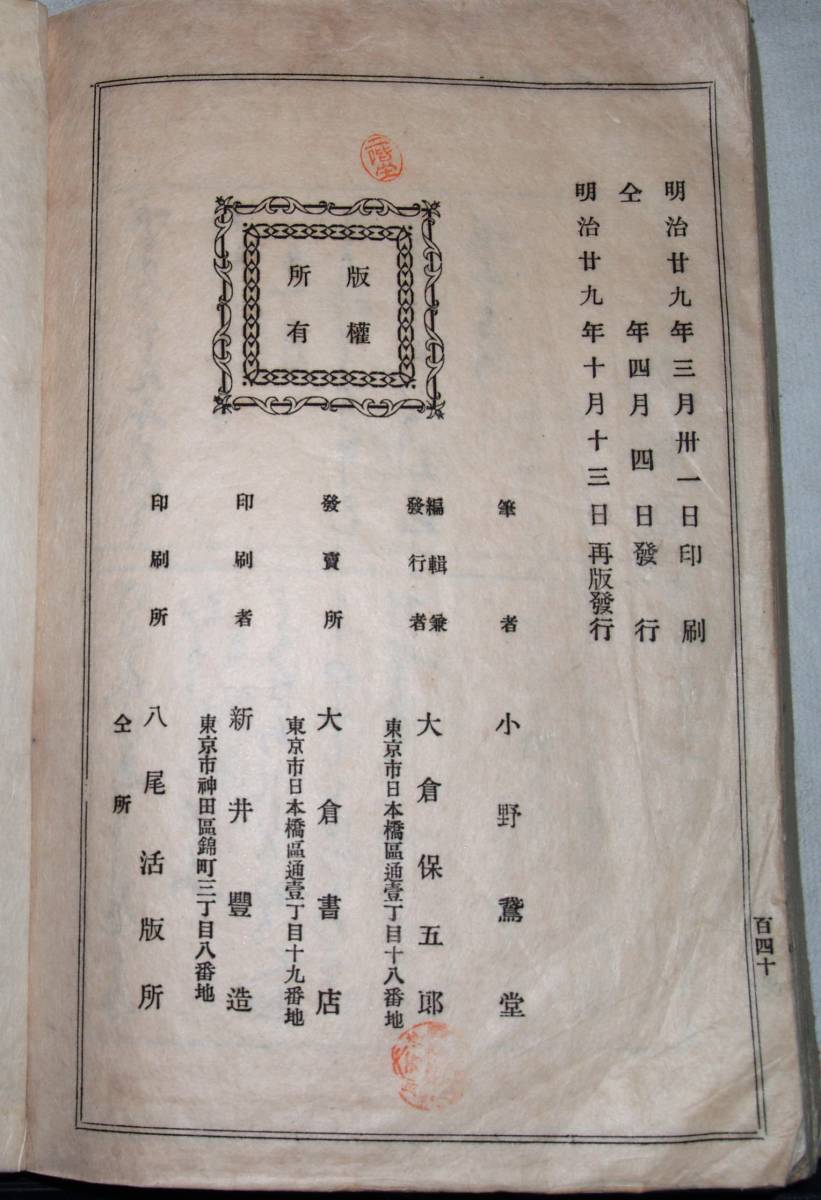 明治廿九年三月卅一日印刷
仝年四月四日發行
明治廿九年十月十三日再版發行
版權
所有
筆者 小野鵞堂
編輯兼
發行者
大倉保五郎
東京市日本橋區通壹丁目十八番地
發賣所 大倉書店
東京市日本橋區通壹丁目十九番地
印刷者 新井豐造
東京市神田區錦町三丁目八番地
印刷所 八尾活版所
仝所
百四十